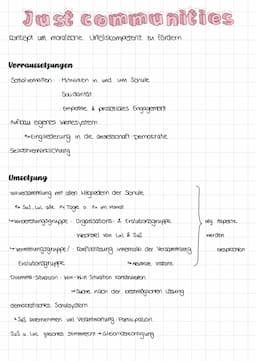 Just communities
Konzept um moralische Urteilskompetenz zu fördern
Vorraussetzungen
Sozialverhalten: Mitwirken in und um Schule
Solidarität
Empathie & prosoziales Engagement
Aufbau eigenes Wertesystem
↳ Eingliederung in die Gesellschaft Demokratie
Selbstverwirklichung
Umsetzung
mit allen Mitgliedern der Schule
SuS, LuL alle Tage o. im Monat
↳ Vorbereitungsgruppe: Organisations- & Evolutionsgruppe
Wechsel von LuL & SuS
↳ Vermittlungsgruppe/: Konfliktlösung innerhalb der Versammlung
Evolutionsgruppe
↳ neutrale Instanz
neg. Aspekte
werden
besprochen
Dilemma-Situation: Win-Win Situation
↳ Suche nach der bestmöglichen Lösung
demokratisches Schulsystem
↳ SuS übernehmen viel Verantwortung: Partizipation
SuS u. LuL gleiches Stimmrecht → Gleichberechtigung